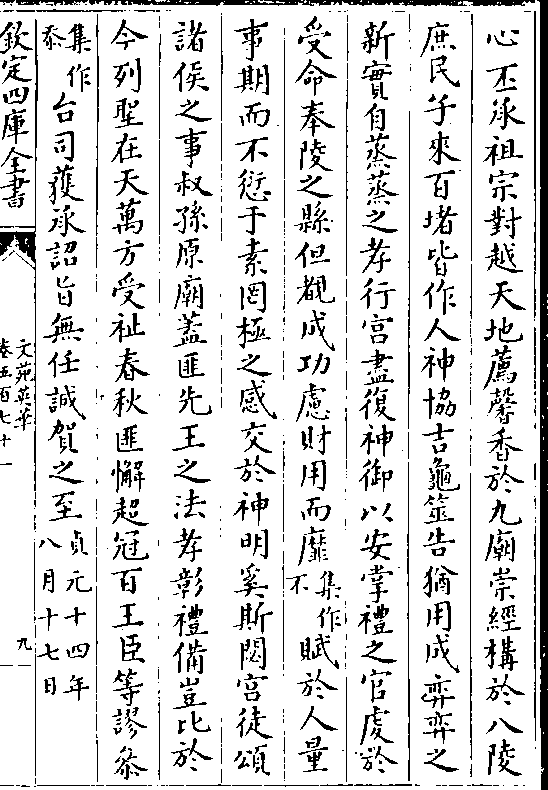 心丕承祖宗對越天地薦馨香於九廟崇經構於八陵
庶民子來百堵皆作人神協吉龜筮告猶用成弈弈之
新實自蒸蒸之孝行宮盡復神御以安掌禮之官虔於
受命奉陵之縣但覩成功慮財用而靡集作不賦於人量
事期而不愆于素罔極之感交於神明奚斯閟宮徒頌
諸侯之事叔孫原廟蓋匪先王之法孝彰禮備豈比於
今列聖在天萬方受祉春秋匪懈超冠百王臣等謬叅
集作忝台司獲承詔旨無任誠賀之至貞元十四年八月十七日
欽定四庫全書
文苑英華
卷五百七十一
九